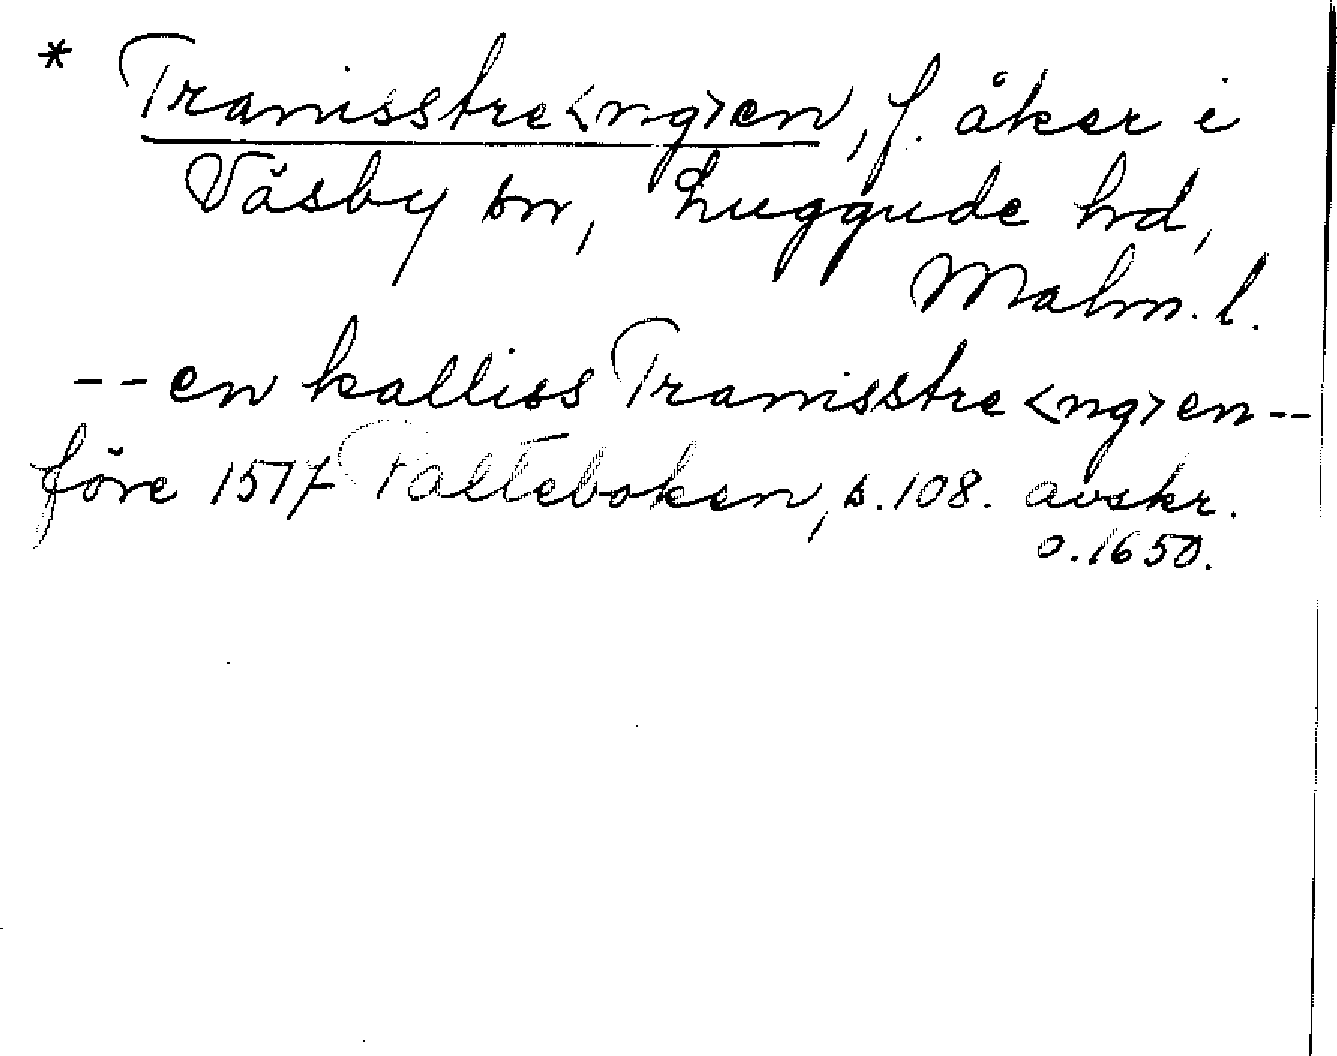 * Tranisstre<ng>en, f. åker i
Väsby sn, Luggude hd,
Malm. l.
-- en kalliss Tranisstre<ng>en --
före 1517 Palteboken, s. 108. avskr.
o. 1650.